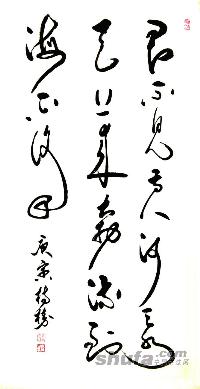 君不見黃河之水
天上來奔流到
海不復回
庚寅
shufa.com